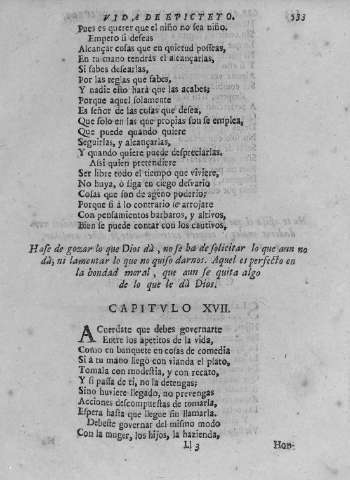 VIDA DE EPICTETO. 533
Pues es querer que el niño no sea niño.
Empero si deseas
Alcançar cosas que en quietud posseas,
En tu mano tendràs el alcançarlas,
Si sabes desearlas,
Por las reglas que sabes,
Y nadie esto harà que las acabes;
Porque aquel solamente
Es señor de las cosas que desea,
Que solo en las que propias son se emplea,
Que puede quando quiere
Seguirlas, y alcançarlas,
Y quando quiere puede despreciarlas.
Assi quien pretendiere
Ser libre todo el tiempo que viviere,
No huya, ò siga en ciego desvario
Cosas que son de ageno poderio;
Porque si à lo contrario se arrojare
Con pensamientos barbaros, y altivos,
Bien se puede contar con los cautivos,
Hase de gozar lo que Dios dà, no se ha de solicitar lo que aun no
dà; ni lamentar lo que no quiso darnos. Aquel es perfecto en
la bondad moral, que aun se quita algo
de lo que le dà Dios.
CAPITVLO XVII.
ACuerdate que debes governarte
Entre los apetitos de la vida,
Como en banquete en cosas de comedia
Si à tu mano llegò con vianda el plato,
Tomala con modestia, y con recato,
Y si passa de ti, no la detengas;
Sino huviere llegado, no prevengas
Acciones descompuestas de tomarla,
Espera hasta que llegue sin llamarla.
Debeste governar del mismo modo
Con la muger, los hijos, la hazienda,
Ll 3 Hon-